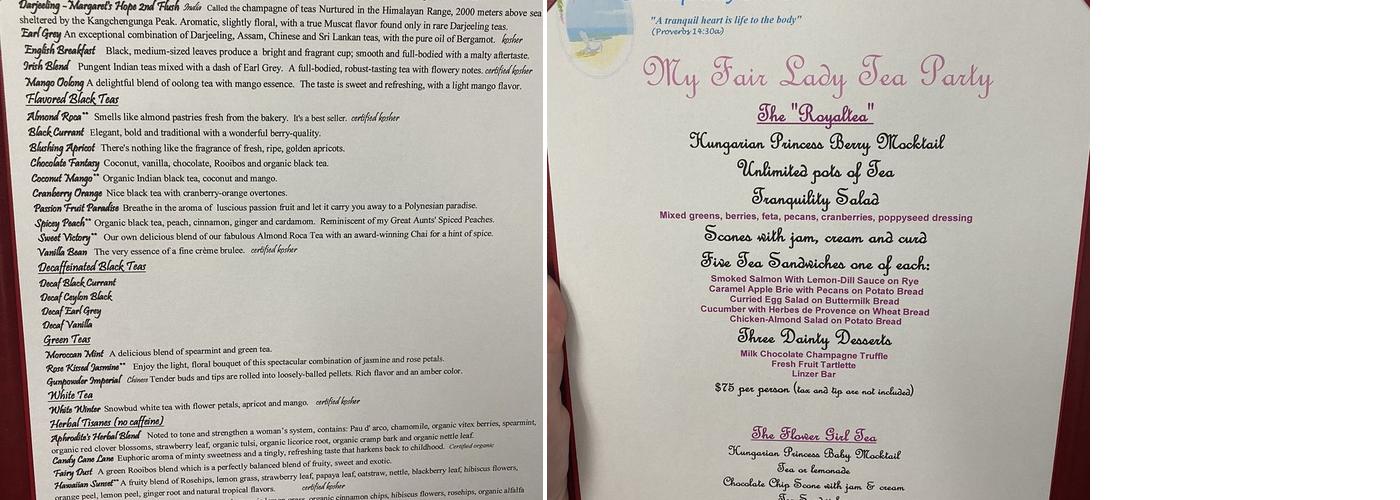 Darjeeling - Margaret's Hope 2nd Flush India Called the champagne of teas Nurtured in the Himalayan Range, 2000 meters above sea
sheltered by the Kangchengunga Peak. Aromatic, slightly floral, with a true Muscat flavor found only in rare Darjeeling teas.
Earl Grey An exceptional combination of Darjeeling, Assam, Chinese and Sri Lankan teas, with the pure oil of Bergamot. kosher
English Breakfast Black, medium-sized leaves produce a bright and fragrant cup; smooth and full-bodied with a malty aftertaste.
Irish Blend Pungent Indian teas mixed with a dash of Earl Grey. A full-bodied, robust-tasting tea with flowery notes. certified kosher
Mango Oolong A delightful blend of oolong tea with mango essence. The taste is sweet and refreshing, with a light mango flavor.
Flavored Black Teas
Almond Roca** Smells like almond pastries fresh from the bakery. It's a best seller. certified kosher
Black Currant Elegant, bold and traditional with a wonderful berry-quality.
Blushing Apricot There's nothing like the fragrance of fresh, ripe, golden apricots.
Chocolate Fantasy Coconut, vanilla, chocolate, Rooibos and organic black tea.
Coconut Mango** Organic Indian black tea, coconut and mango.
Cranberry Orange Nice black tea with cranberry-orange overtones.
Passion Fruit Paradise Breathe in the aroma of luscious passion fruit and let it carry you away to a Polynesian paradise.
Spicey Peach** Organic black tea, peach, cinnamon, ginger and cardamom. Reminiscent of my Great Aunts' Spiced Peaches.
Sweet Victory** Our own delicious blend of our fabulous Almond Roca Tea with an award-winning Chai for a hint of spice.
Vanilla Bean The very essence of a fine crème brulee. certified kosher
Decaffeinated Black Teas
Decaf Black Currant
Decaf Ceylon Black
Decaf Earl Grey
Decaf Vanilla
Green Teas
Moroccan Mint A delicious blend of spearmint and green tea.
Rose Kissed Jasmine** Enjoy the light, floral bouquet of this spectacular combination of jasmine and rose petals.
Gunpowder Imperial Chinese Tender buds and tips are rolled into loosely-balled pellets. Rich flavor and an amber color.
White Tea
White Winter Snowbud white tea with flower petals, apricot and mango. certified kosher
Herbal Tisanes (no caffeine)
Aphrodite's Herbal Blend Noted to tone and strengthen a woman's system, contains: Pau d' arco, chamomile, organic vitex berries, spearmint,
organic red clover blossoms, strawberry leaf, organic tulsi, organic licorice root, organic cramp bark and organic nettle leaf.
Candy Cane Lane Euphoric aroma of minty sweetness and a tingly, refreshing taste that harkens back to childhood. Certified organic
Fairy Dust A green Rooibos blend which is a perfectly balanced blend of fruity, sweet and exotic.
Hawaiian Sunset** A fruity blend of Rosehips, lemon grass, strawberry leaf, papaya leaf, oatstraw, nettle, blackberry leaf, hibiscus flowers,
orange peel, lemon peel, ginger root and natural tropical flavors. certified kosher
organic cinnamon chips, hibiscus flowers, rosehips, organic alfalfa
"A tranquil heart is life to the body"
(Proverbs 14:30a)
My Fair Lady Tea Party
The "Royaltea"
Hungarian Princess Berry Mocktail
Unlimited pots of Tea
Tranquility Salad
Mixed greens, berries, feta, pecans, cranberries, poppyseed dressing
Scones with jam, cream and curd
Five Tea Sandwiches one of each:
Smoked Salmon With Lemon-Dill Sauce on Rye
Caramel Apple Brie with Pecans on Potato Bread
Curried Egg Salad on Buttermilk Bread
Cucumber with Herbes de Provence on Wheat Bread
Chicken-Almond Salad on Potato Bread
Three Dainty Desserts
Milk Chocolate Champagne Truffle
Fresh Fruit Tartlette
Linzer Bar
$75 per person (tax and tip are not included)
The Flower Girl Tea
Hungarian Princess Baby Mocktail
Tea or lemonade
Chocolate Chip Scone with jam & cream